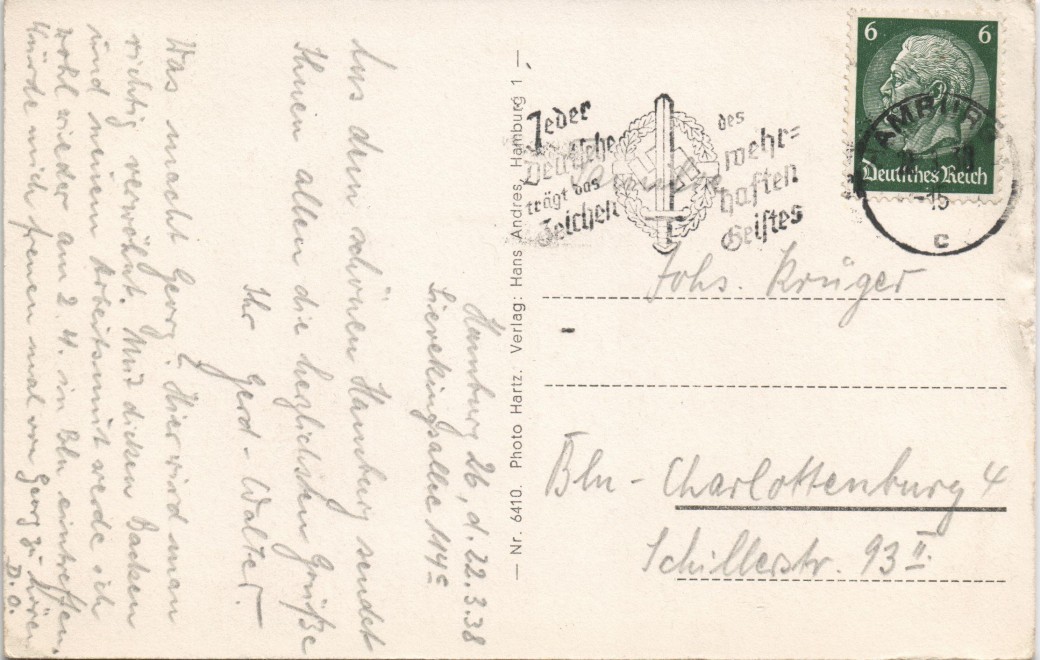 Hamburg 26, d. 22.3.38
Sievekingsallee 149c
Aus dem schönen Hamburg sendet
Ihnen allen die herzlichsten Grüße
Ihr Gerd-Walter.
Was macht Georg? Hier wird man
richtig verwöhnt. Mit dicken Backen
und neuem Arbeitsmut werde ich
wohl wieder am 2.4. in Bln eintreffen.
Würde mich freuen mal von Georg zu hören
D.O.
— Nr. 6410. Photo Hartz. Verlag: Hans Andres, Hamburg 1 —
Jeder
Deutsche
trägt das
Zeichen
des
wehr=
haften
Geistes
6 6
Deutsches Reich
HAMBURG
-15
c
Johs. Krüger
Bln - Charlottenburg 4
Schillerstr. 93 II.